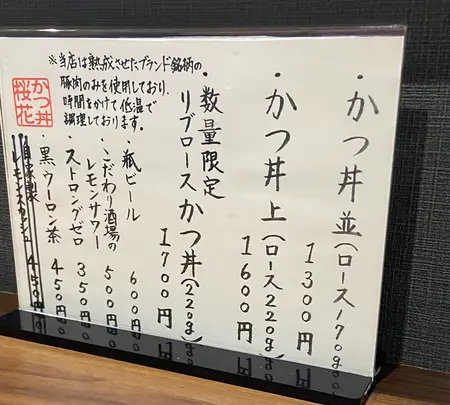 ・かつ丼並(ロース170g)
1300円
・かつ丼上(ロース220g)
1600円
・数量限定
リブロースかつ丼(220g)
1700円
・瓶ビール 600円
・こだわり酒場の
レモンサワー 500円
ストロングゼロ 350円
・黒ウーロン茶 450円
自家製
レモンスカッシュ 450円
※当店は熟成させたブランド銘柄の
豚肉のみを使用しており、
時間をかけて低温で
調理しております。
かつ丼
桜花